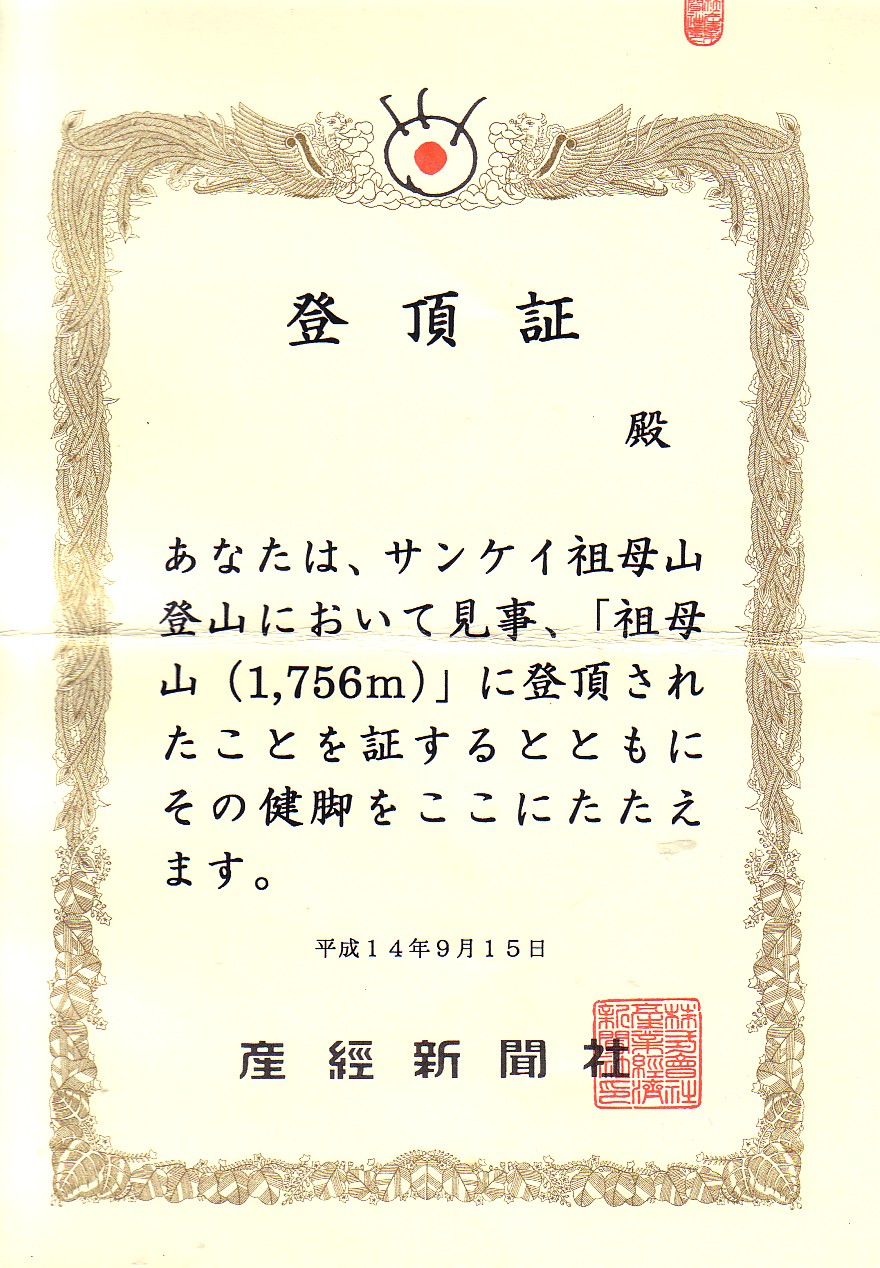 登頂証
殿
あなたは、サンケイ祖母山
登山において見事、「祖母
山（1,756m）」に登頂され
たことを証するとともに
その健脚をここにたたえ
ます。
平成１４年９月１５日
産經新聞社
株式會社
産業經濟
新聞社印